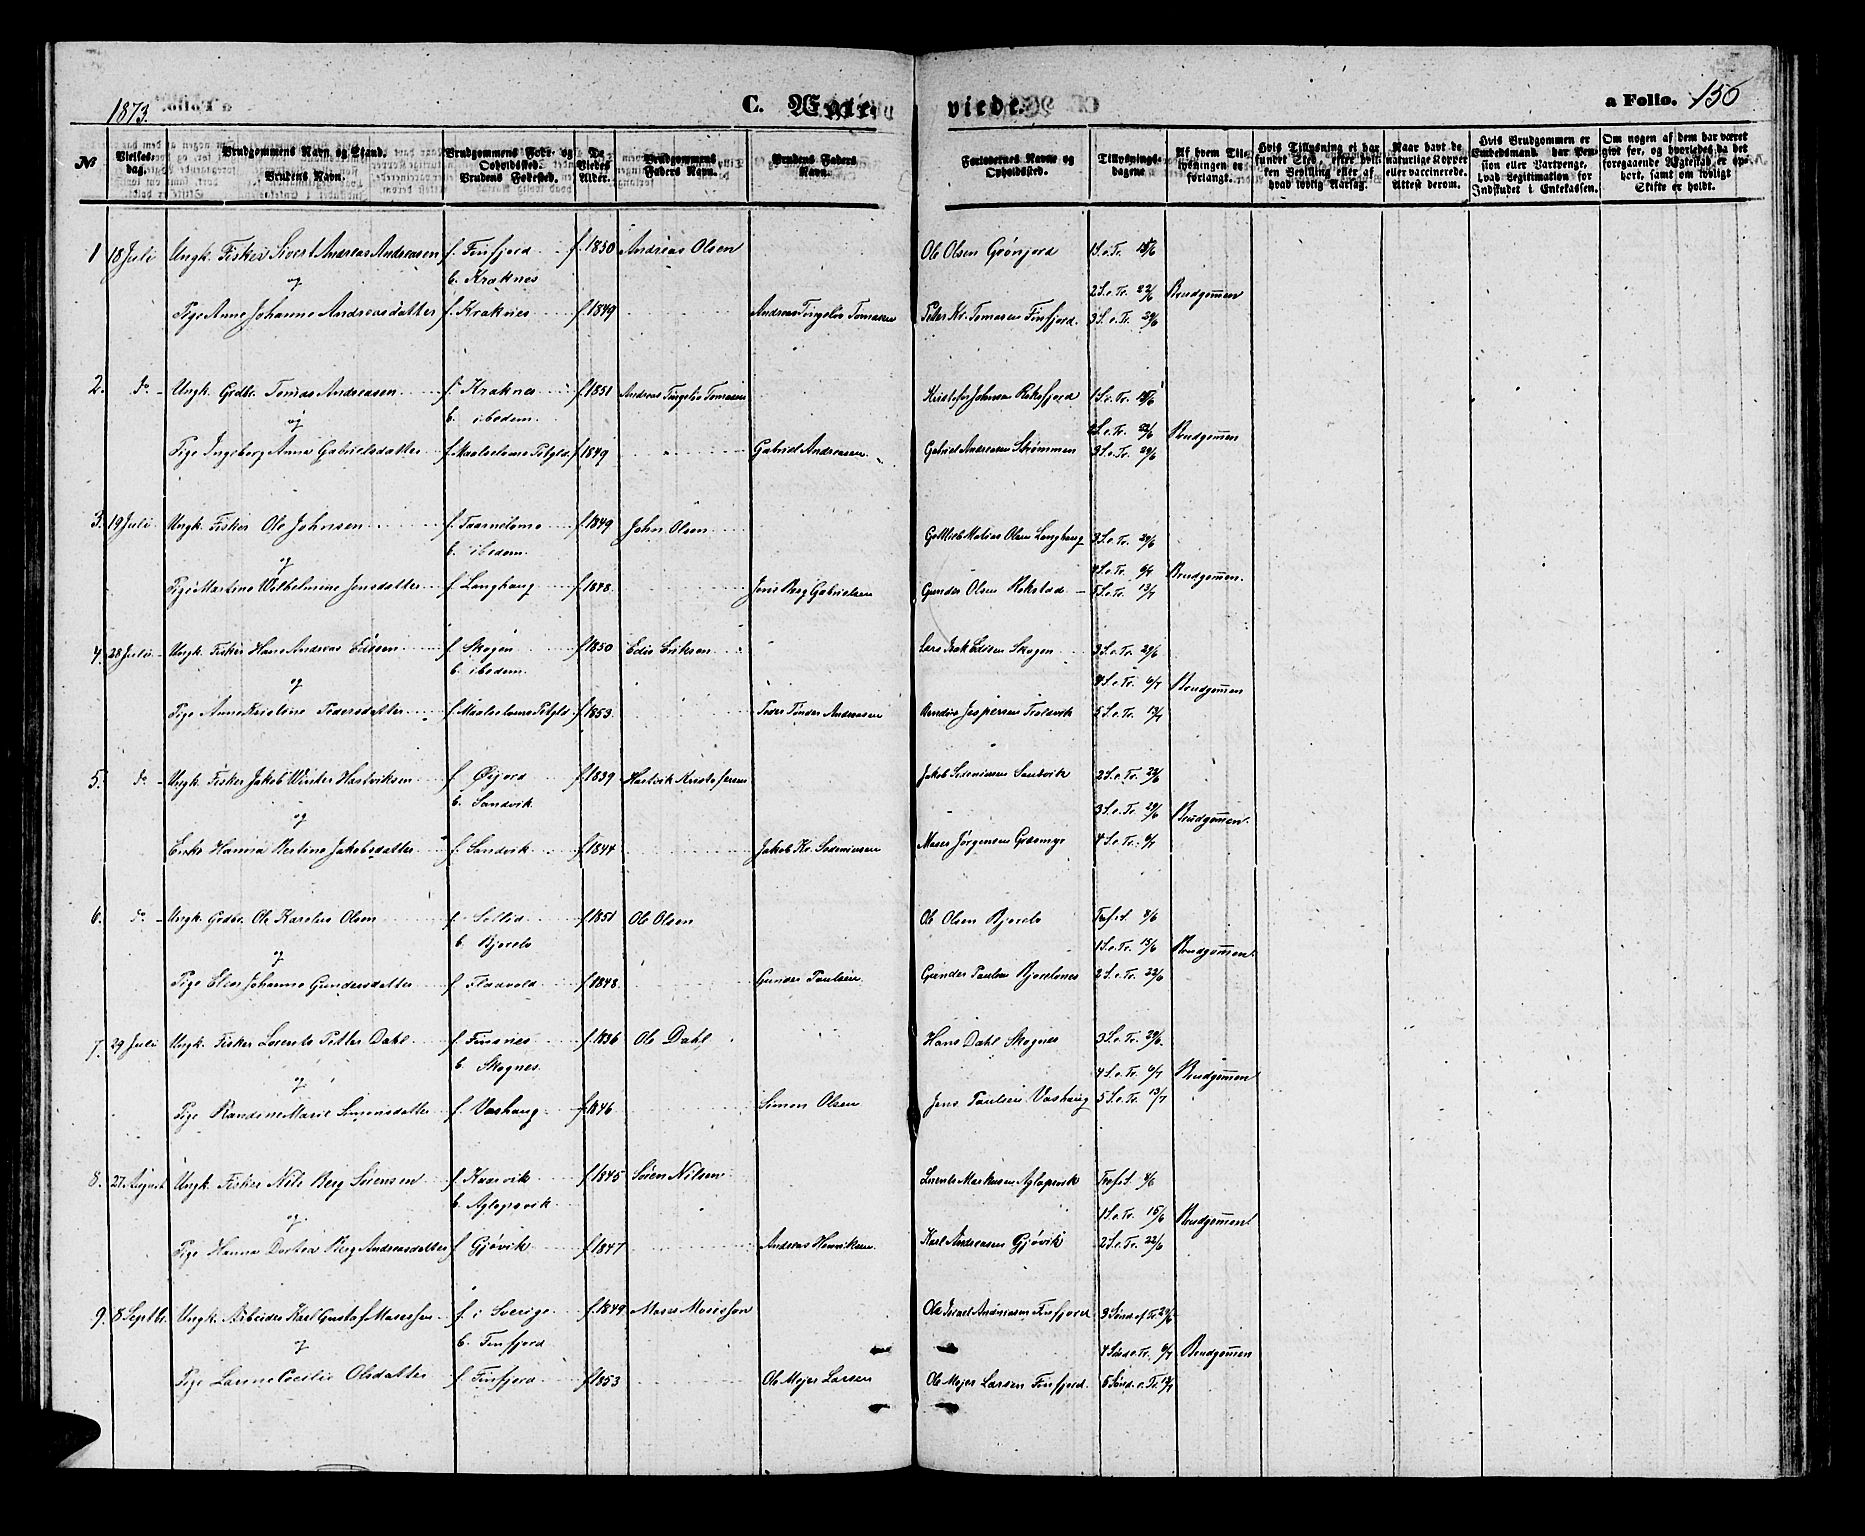 1873.
C. Ægte-
viede.
a Folio. 150
№
Vielses-dag.
Brudgommens Navn og Stand. Brudens Navn.
Brudgommens Føde- og Opholdssted. Brudens Fødested.
De Viedes Alder.
Brudgommens Faders Navn.
Brudens Faders Navn.
Forlovernes Navne og Opholdssted.
Tillysnings-dagene.
Af hvem Til-lysningen er forlangt.
Hvis Tillysning ei har fundet Sted, efter hvil-ken Bevilling eller af hvad lovlig Aarsag.
Naar havt de naturlige Kopper eller vaccinerede. Attest derom.
Hvis Brudgommen er Embedsmand, har Pen-sion eller Vartpenge, hvad Legitimation for Indskudet i Enkekassen.
Om nogen af dem har været gift før, og hvorledes da det foregaaende Ægteskab er op-hørt, samt om lovligt Skifte er holdt.
1 18 Juli Ungk. Fisker Sivert Andreas Andreasen f. Finfjord f. 1850 Andreas Olsen Ole Olsen Grønjord 1 S. e. Tr. 15/6
og b. Kraknes
2 S. e. Tr. 22/6 Brudgommen
Pige Anne Johanne Andreasdatter f. Kraknes f. 1849 Andreas Tingelin Tomasen Peter Kr. Tomasen Finfjord. 3 S. e. Tr. 29/6
2. do Ungk. Grdbr. Tomas Andreasen f. Kraknes f. 1851 Andreas Tingelin Tomasen Kristofer Johnsen 1 S. e. Tr. 15/6
og b. ibedem.
2 S. e. Tr. 22/6 Brudgommen
Pige Ingeborg Anna Gabrielsdatter f. Maalselvens Pstgld. f. 1849 Gabriel Andreasen Gabriel Andreasen Strømmen 3 S. e. Tr. 29/6
3. 19 Juli Ungk. Fisker Ole Johnsen f. f. 1849 John Olsen Gottlieb Matias Olsen Langhaug 3 S. e. Tr. 29/6
og b. ibedem.
4 S. e. Tr. 6/7 Brudgommen.
Pige Martine Wilhelmine Jensdatter f. Langhaug f. 1848. Jens Berg Gabrielsen Gunder Olsen 5 S. e. Tr. 13/7
4. 28 Juli Ungk. Fisker Hans Andreas Edisen f. Skogen f. 1850 Edis Eriksen Lars Edisen Skogen 3 S. e. Tr. 29/6
og b. ibedem.
4 S. e. Tr. 6/7 Brudgommen
Pige Anne Kristine Pedersdatter f. Maalselvens Pstgld. f. 1853. Peder Andreasen Jespersen 5 S. e. Tr. 13/7
5. do Ungk. Fisker Jakob Winter Hartviksen f. Øijord f. 1839 Hartvik Kristofersen Jakob Sandvik 2 S. e. Tr. 22/6
og b. Sandvik
3 S. e. Tr. 29/6 Brudgommen.
Enke Hanna Jakobsdatter f. Sandvik f. 1844 Jakob Kr. Moses Jørgensen Græsmyr 4 S. e. Tr. 6/7
6. do Ungk. Grdbr. Ole Karelius Olsen f. f. 1851 Ole Olsen Ole Olsen Bjorelv Tref. S. 8/6
og b. Bjorelv
1 S. e. Tr. 15/6 Brudgommen.
Pige Elen Johanna Gundersdatter f. Fladvold f. 1848. Gunder Paulsen Gunder Paulsen Bjorelvnes 2 S. e. Tr. 22/6
7. 29 Juli Ungk. Fisker Lorents Petter Dahl f. Finsnes f. 1836 Ole Dahl Hans Dahl Skognes 3 S. e. Tr. 29/6.
og b. Skognes.
4 S. e. Tr. 6/7 Brudgommen
Pige Randine Marie Simonsdatter f. Vashaug f. 1846 Simon Olsen Jens Paulsen Vashaug 5 S. e. Tr. 13/7
8. 27 August Ungk. Fisker Nils Berg Sørensen f. Kaarvik f. 1845 Søren Nilsen Lorents Markusen Aglapsvik Tref. S. 8/6
og b. Aglapsvik
1 S. e. Tr. 15/6 Brudgommen
Pige Hanna Dortea Berg Andreasdatter f. Gjøvik f. 1847 Andreas Henriksen Karl Andreasen Gjøvik 2 S. e. Tr. 22/6
9. 8 Septbr. Ungk. Arbeider Karl Gustaf Mosesson f. i Sverige f. 1849 Moses Mosesson Ole Israel Andreasen Finfjord 3 Sönd. ef Tr. 29/6
og b. Finfjord
4 Sönd. e. Tr. 6/7 Brudgommen
Pige Lorine Cecilie Olsdatter f. Finfjord f. 1853 Ole Mejer Larsen Ole Mejer Larsen Finfjord. 5 Sönd. e. Tr. 13/7